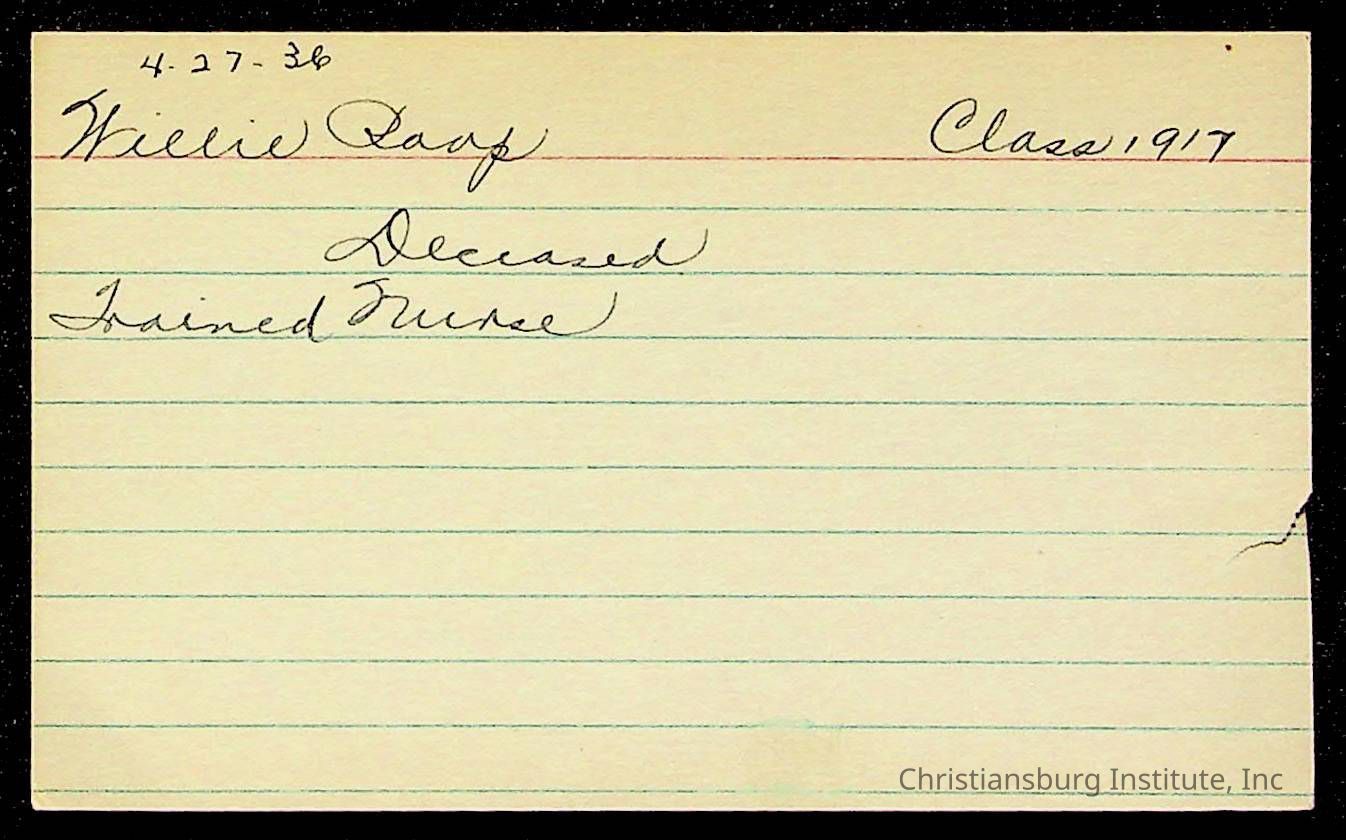 4-27-36
Willie Roop Class 1917
Deceased
Trained Nurse
Christiansburg Institute, Inc